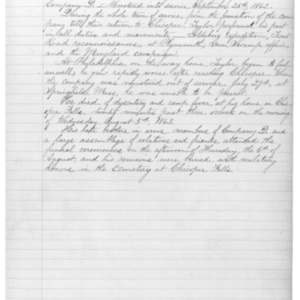 Company D. Mustered into service, September 25th 1862.
During the whole term of service from the formation of the com-
pany until their return to Chicopee, Taylor performed his part
in all duties and movements — Expedition, Trent
Road reconnoissance, at Plymouth, Gum Swamp affair,
and the Maryland campaign.
At Philadelphia on the way home, Taylor began to fail
and he grew rapidly worse after reaching Chicopee. When
the company was mustered out of service, July 29th, at
Springfield Mass., he was unable to be present.
He died of dysentery and camp fever, at his home in Chic-
opee Falls, twenty minutes past three, o'clock on the morning
of Wednesday August 5th 1863.
His late brothers in arms members of Company D. and
a large assemblage of relatives and friends, attended the
funeral ceremonies on the afternoon of Thursday, the 6th of
August, and his remains were buried, with military
honors in the cemetery at Chicopee Falls.